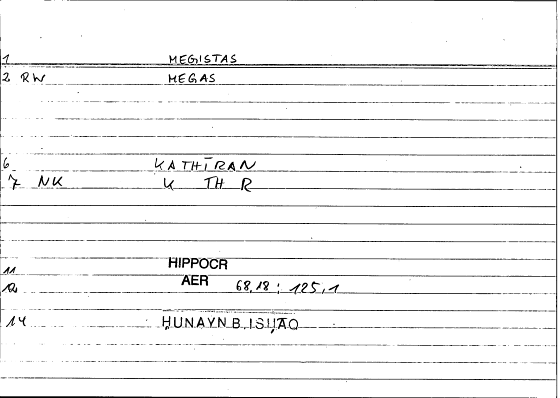 1 MEGISTAS
2 RW MEGAS
6 KATHĪRAN
7 NK K TH R
11 HIPPOCR
12 AER 68,18 : 125,1
14 ḤUNAYN B. ISḤĀQ